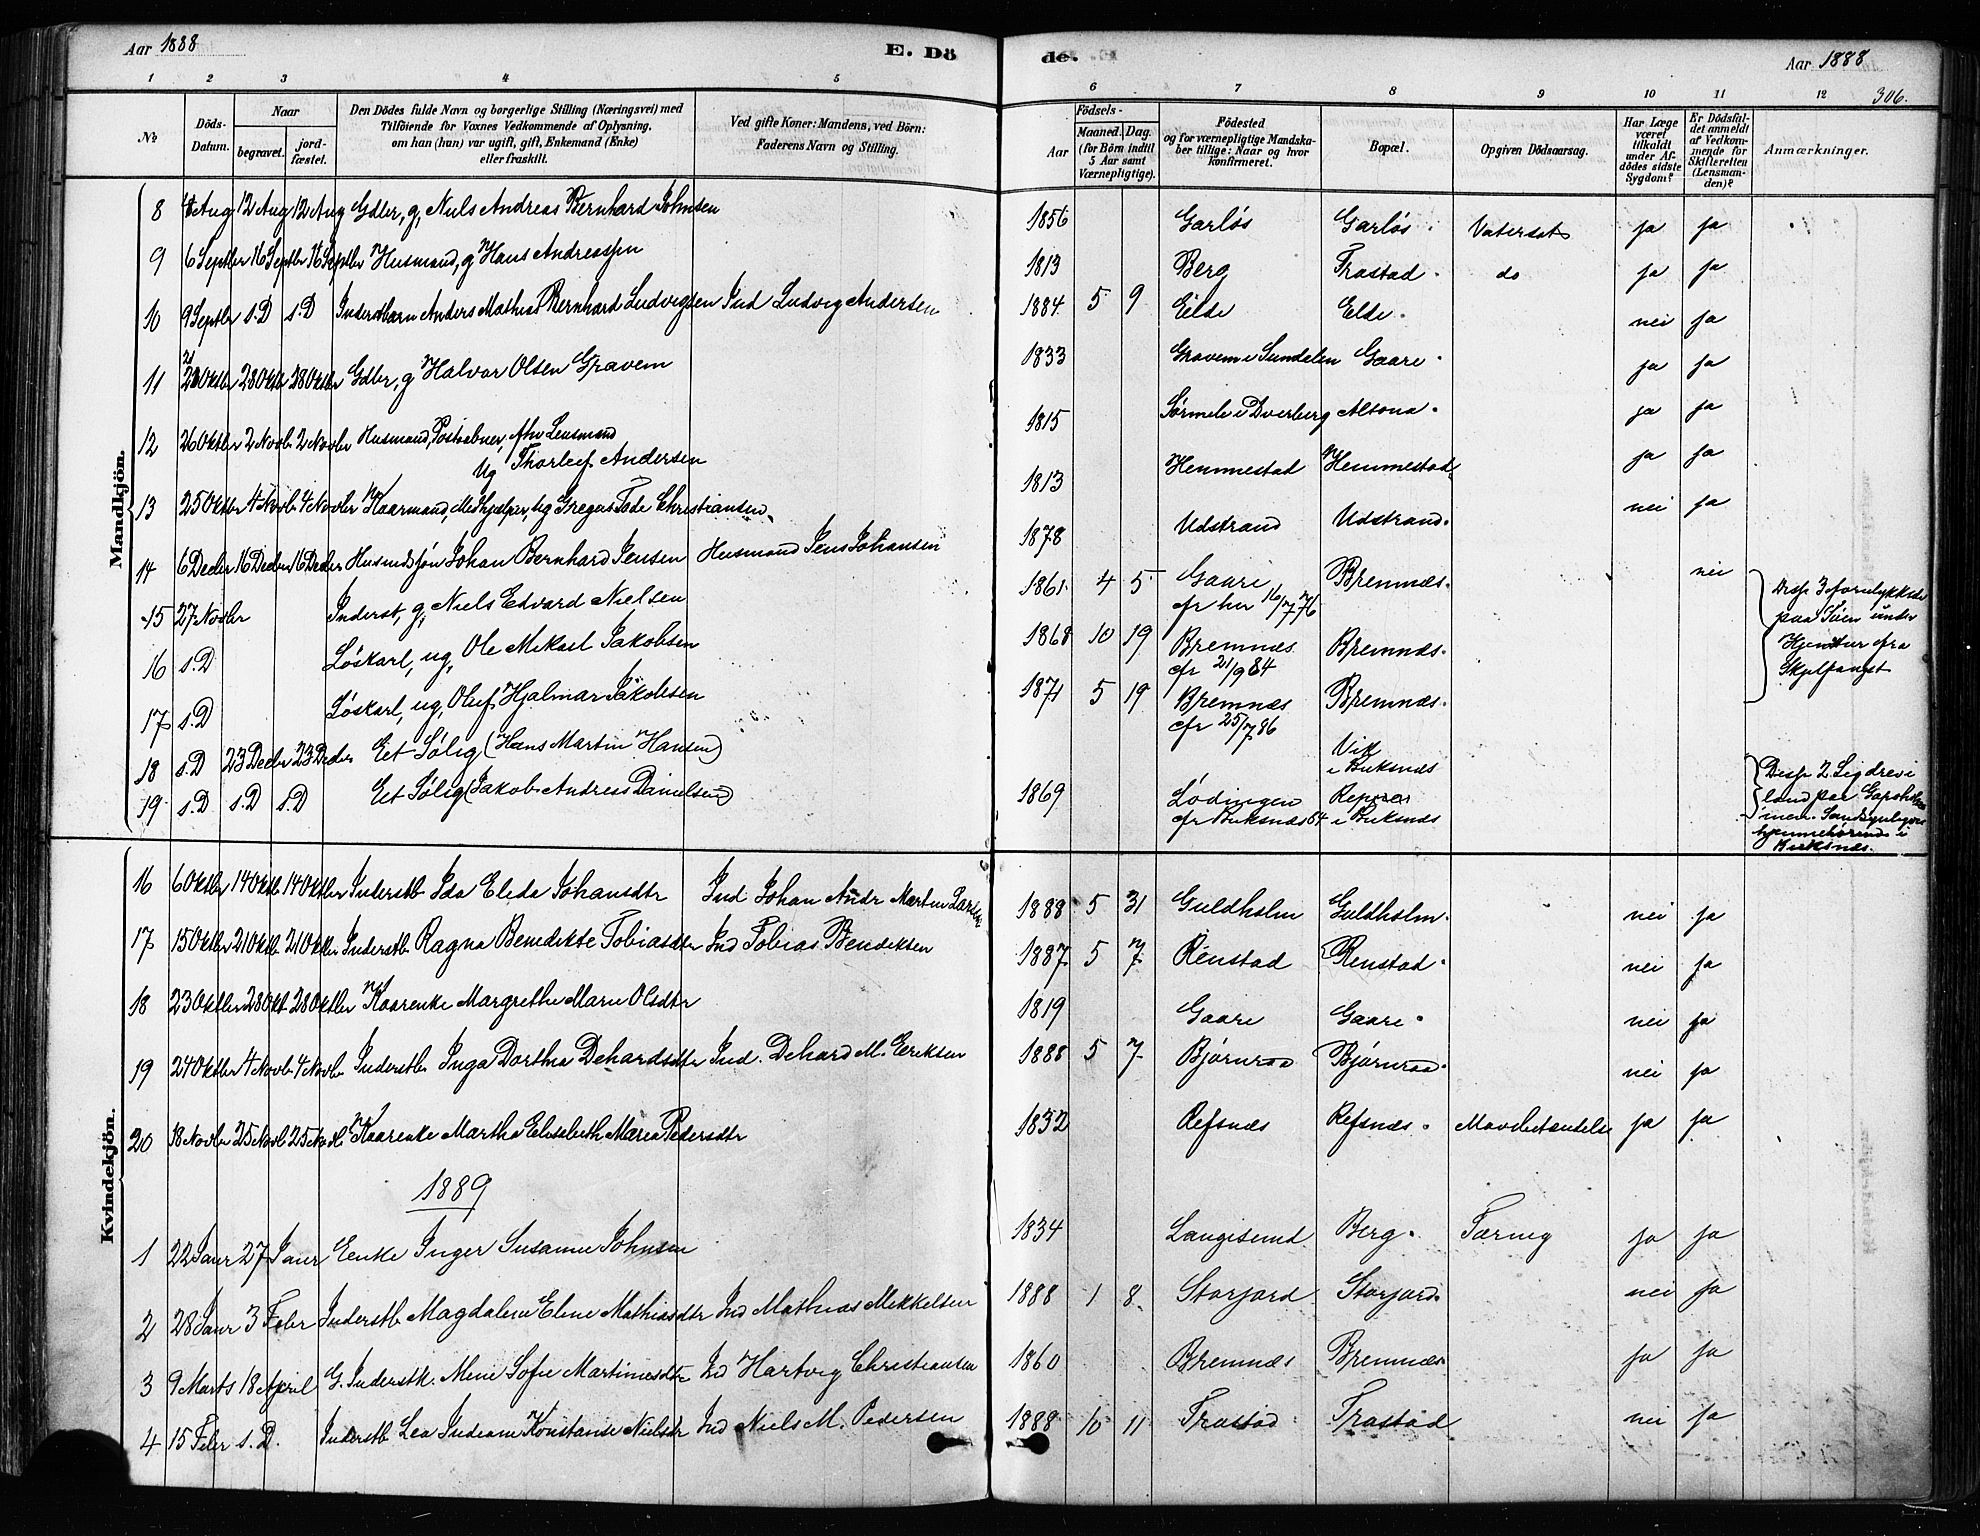 Aar 1888 E. Dö de. Aar 1888
306.
1 2 3 4 5 6 7 8 9 10 11 12
№ Döds-Datum. Naar begravet. jord-fæstet. Den Dödes fulde Navn og borgerlige Stilling (Næringsvei) med Tilföiende for Voxnes Vedkommende af Oplysning, om han (hun) var ugift, gift, Enkemand (Enke) eller fraskilt. Ved gifte Koner: Mandens, ved Börn: Faderens Navn og Stilling. Födsels- Aar Maaned. Dag. (for Börn indtil 5 Aar samt Værnepligtige). Födested og for værnepligtige Mandskaber tillige: Naar og hvor konfirmeret. Bopæl. Opgiven Dödsaarsag. Har Læge været tilkaldt under Afdödes sidste Sygdom? Er Dödsfaldet anmeldt af Vedkommende for Skifteretten (Lensmanden)? Anmærkninger.
Mandkjön.
8 Aug 12 Aug 12 Aug Gdbr, g, Nils Andreas Bernhard Johnsen 1856 Garløs Garløs. Vatersot ja ja
9 6 Septbr 16 Septbr 16 Septbr Husmand, g Hans Andreassen 1813 Berg Trastad. do ja ja
10 9 Septbr s.D s.D Inderstbarn Anders Mathias Bernhard Ludvigsen Ind Ludvig Andersen 1884 5 9 Elde Elde. nei ja
11 Oktbr 28 Oktbr 28 Oktbr Gdbr, g Halvor Olsen Gravem 1833 Gravem i Sundalen Gaare. ja ja
12 26 Oktbr 2 Novbr 2 Novbr Husmand, Postaabner, fhv Lensmand
Ug Thorleif Andersen 1815 Sørmele i Dverberg Altona. ja ja
13 25 Oktbr 4 Novbr 4 Novbr Kaarmand, Medhjelper, ug Gregus Tode Christiansen. 1813 Hemmestad Hemmestad ja ja
14 6 Decbr 16 Decbr 16 Decbr Husmdsøn Johan Bernhard Jensen Husmand Jens Johansen 1878 Udstrand Udstrand. nei ja
15 27 Novbr Inderst, g, Niels Edvard Nielsen 1861 4 5 Gaare
cfr her 16/7 76 Bremnæs. nei Disse 3 forulykkede
paa Søen under
Hjemtur fra
Skjelfangst
16 s.D Løskarl, ug, Ole Mikael Jakobsen 1868 10 19 Bremnæs
cfr 21/9 84 Bremnæs.
17 s.D Løskarl, ug, Oluf Hjalmar Jakobsen 1871 5 19 Bremnæs
cfr 25/7 86 Bremnæs.
18 s.D 23 Decbr 23 Decbr Eet Sølig (Hans Martin Hansen) Vik
i Buksnæs
19 s.D s.D s.D Eet Sølig (Jakob Andreas Danielsen) 1869 Lødingen
cfr Buksnæs 84 i Buksnæs Disse 2 Lig drev i
land paa
Sandsynligvis
hjemmehørende i
Buksnæs.
Kvindekjön.
16 6 Oktbr 14 Oktb 14 Oktbr Inderstb Ida Elida Johansdtr Ind Johan Andr Martin Larsen 1888 5 31 Guldholm Guldholm. nei ja
17 15 Oktbr 21 Oktb 21 Oktbr Inderstb Ragna Benedikte Tobiasdtr Ind Tobias Bendiksen 1887 5 7 Renstad Renstad. nei ja
18 23 Oktbr 28 Okt 28 Oktbr Kaarenke Margrethe Marie Olsdtr 1819 Gaare Gaare. nei ja
19 24 Oktbr 4 Novbr 4 Novbr Inderstb Inga Dorthea Dehardsdtr Ind. Dehard M. Eriksen 1888 5 7 Bjørnraa Bjørnraa. nei ja
20 18 Novbr 25 Novb 25 Novb Kaarenke Martha Elisebeth Maria Pedersdtr 1832 Refsnæs Refsnæs. Mavebetændelse ja ja
1889
1 22 Janr 27 Janr Enke Inger Susanne Johnsen 1834 Langesund Berg. Tæring ja ja
2 28 Janr 3 Febr Inderstb Magdalena Eline Mathiasdtr Ind Mathias Mikkelsen 1888 1 8 Storjord Storjord. nei ja
3 9 Marts 18 April G. Inderstk. Mene Sofie Martinusdtr Ind Hartvig Christiansen 1860 Bremnæs Bremnæs ja ja
4 15 Febr s.D. Inderstb Lea Indiane Konstanse Nielsdtr Ind Niels M. Pedersen 1888 10 11 Trastad Trastad nei ja